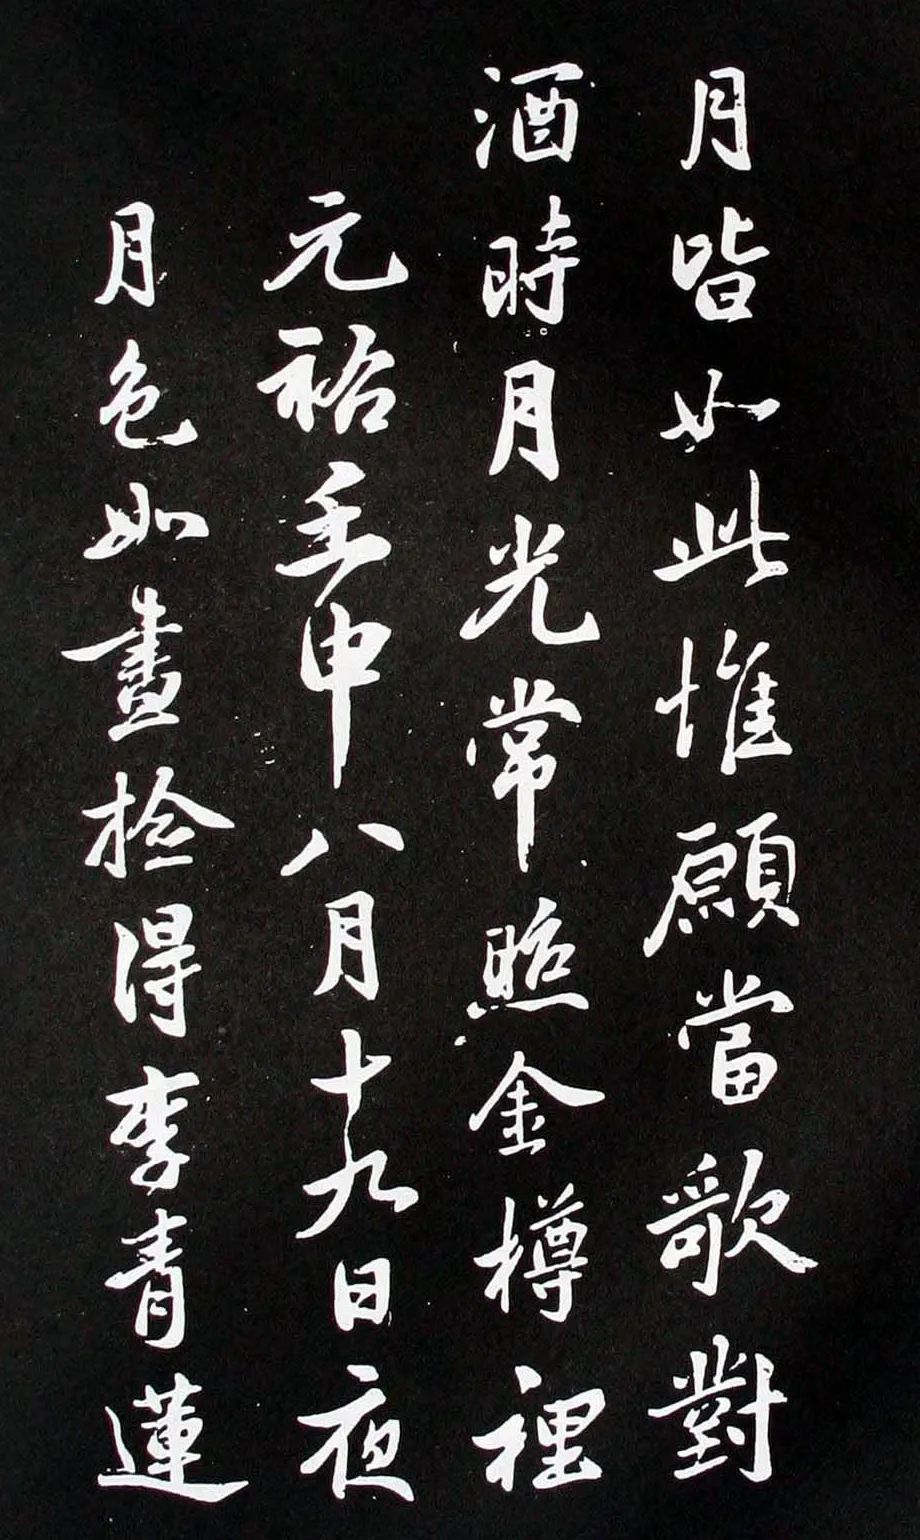 月皆如此惟願當歌對
酒時月光常照金樽裡
元祐壬申八月十九日夜
月色如晝捡得李青蓮